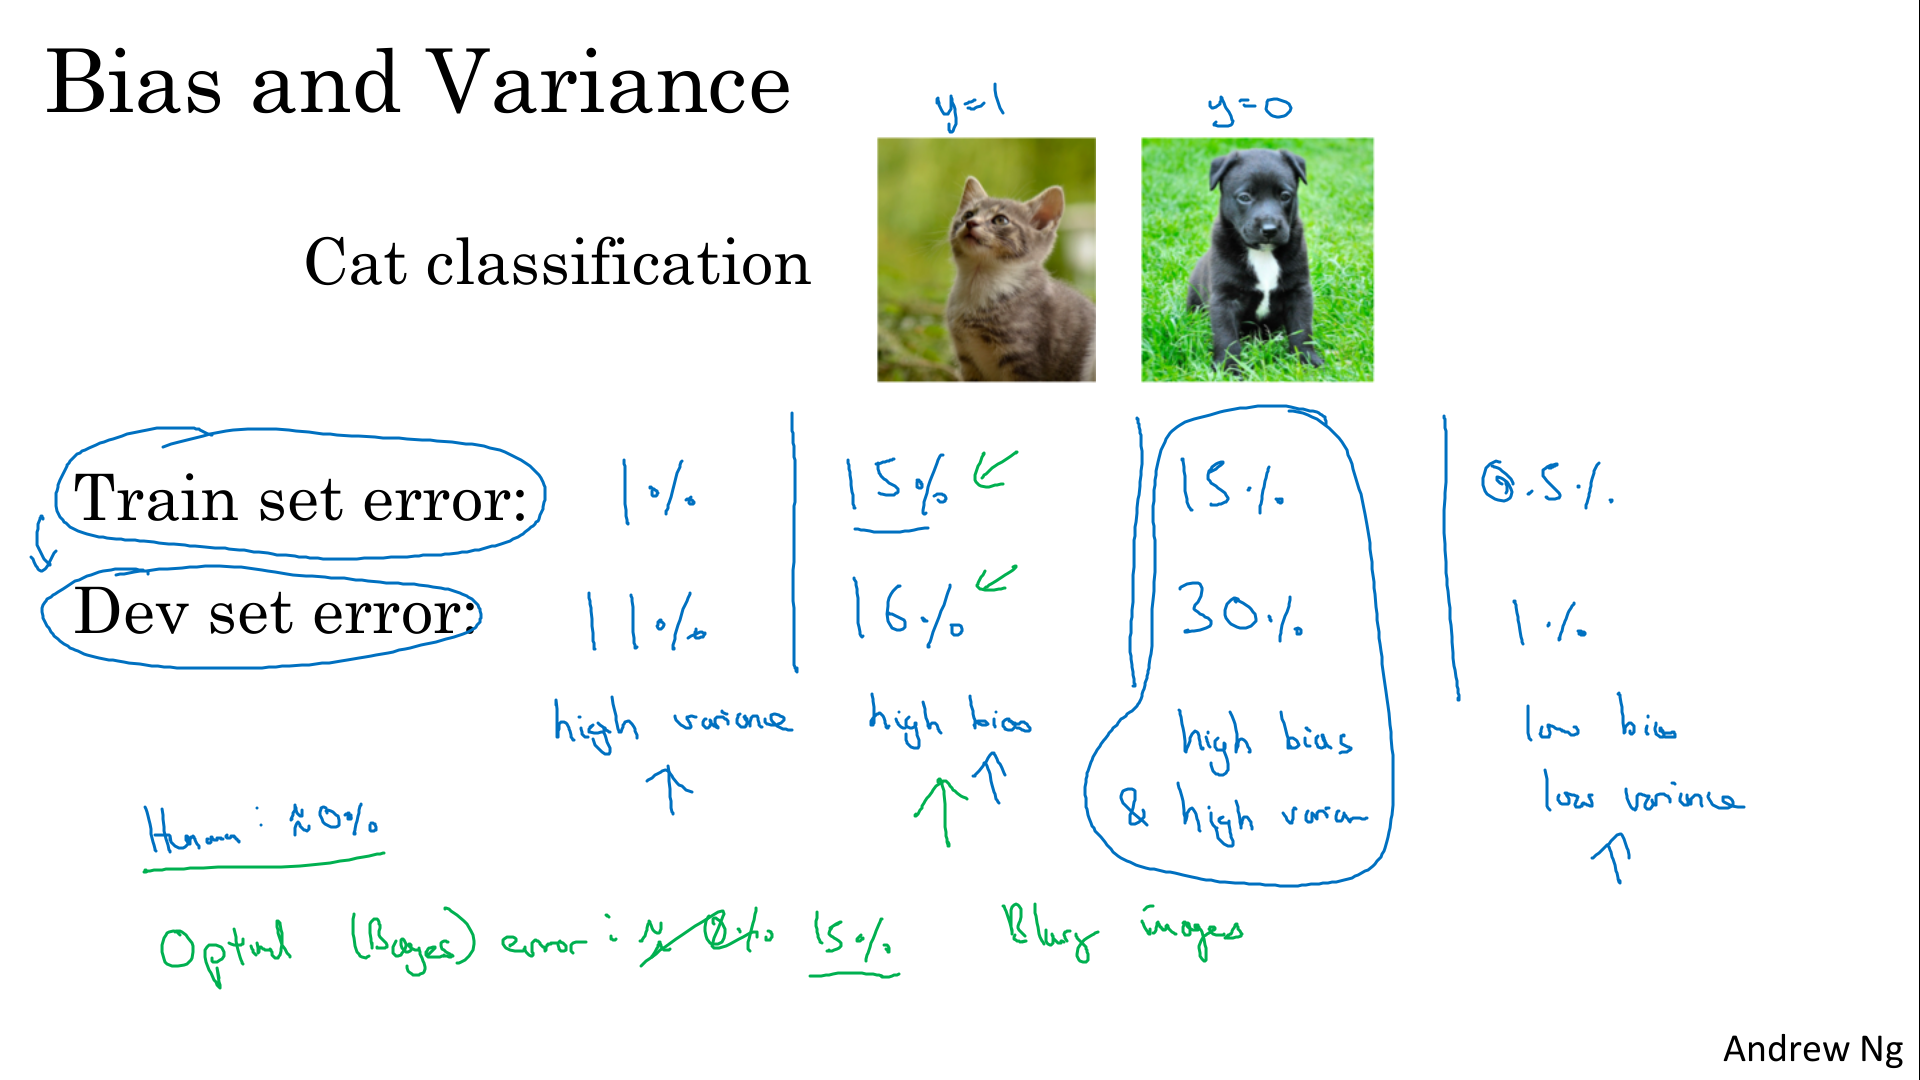 Bias and Variance
y=1 y=0
Cat classification
Train set error: 1% 15% 15% 0.5%
Dev set error: 11% 16% 30% 1%
high variance high bias high bias low bias
& high varian low variance
Human: ≈0%
Optimal (Bayes) error: ≈ 0% 15% Blury images
Andrew Ng